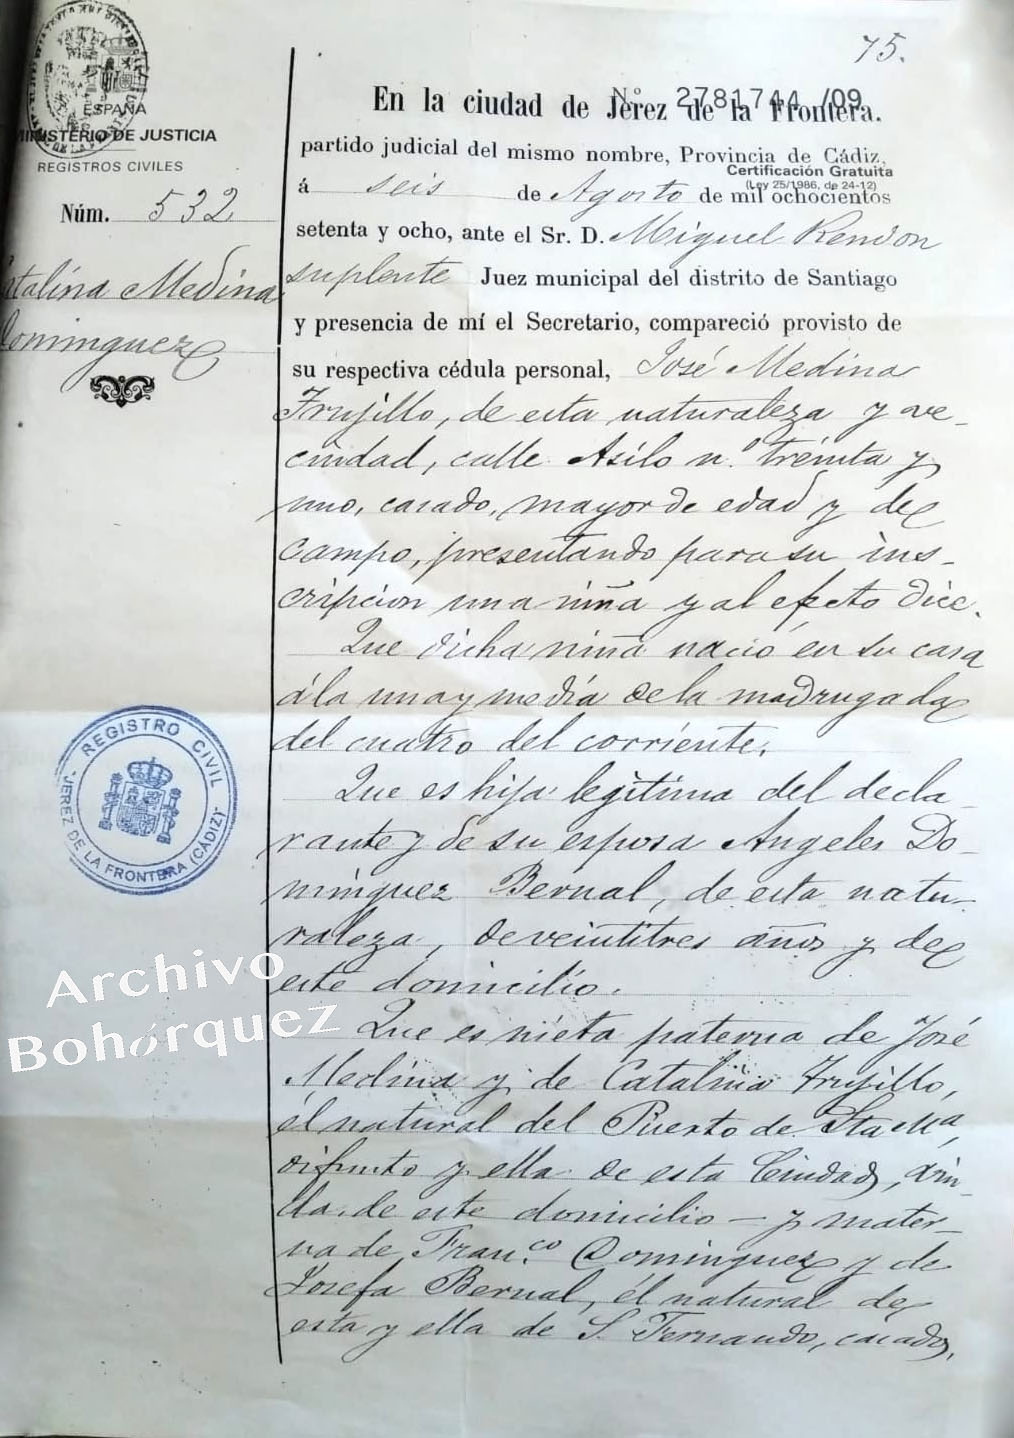 75.
ESPAÑA
MINISTERIO DE JUSTICIA
REGISTROS CIVILES
Núm. 532
Catalina Medina
Dominguez
Nº 2781744 /09
En la ciudad de Jerez de la Frontera.
partido judicial del mismo nombre, Provincia de Cádiz,
Certificación Gratuita
(Ley 25/1986, de 24-12)
á seis de Agosto de mil ochocientos
setenta y ocho, ante el Sr. D. Miguel Rendon
suplente Juez municipal del distrito de Santiago
y presencia de mí el Secretario, compareció provisto de
su respectiva cédula personal, José Medina
Trujillo, de esta naturaleza y ve-
cindad, calle Asilo n.º treinta y
uno, casado, mayor de edad y del
campo, presentando para su ins-
cripcion una niña y al efecto dice.
Que dicha niña nació en su casa
á la una y media de la madrugada
del cuatro del corriente.
Que es hija legitima del decla-
rante y de su esposa Angeles Do-
minguez Bernal, de esta natu-
raleza, de veintitres años y de
este domicilio.
Que es nieta paterna de José
Medina y de Catalina Trujillo,
él natural del Puerto de Sta Mª,
difunto y ella de esta Ciudad, viu-
da, de este domicilio — y mater-
na de Fran.co Dominguez y de
Josefa Bernal, él natural de
esta y ella de S. Fernando, casados,
REGISTRO CIVIL
JEREZ DE LA FRONTERA (CÁDIZ)
Archivo
Bohórquez